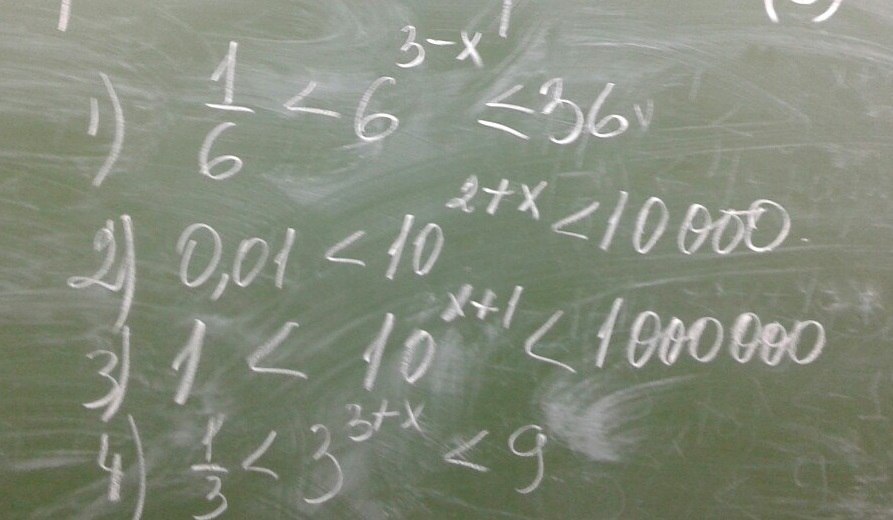 1) 1/6 < 6^(3-x) ≤ 36
2) 0,01 < 10^(2+x) < 10000.
3) 1 < 10^(x+1) < 1000000
4) 1/3 < 3^(3+x) < 9